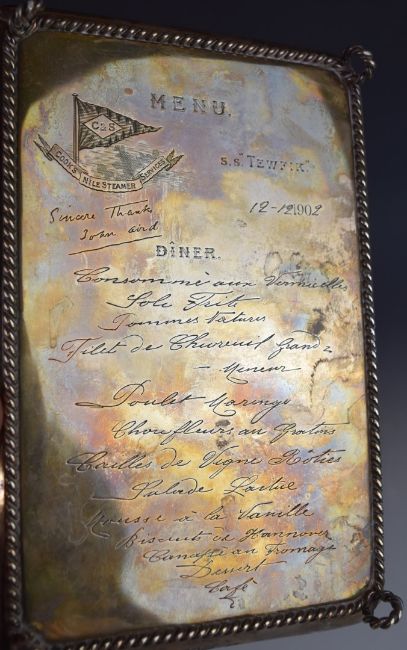 MENU.
C&S
COOK'S NILE STEAMER SERVICES
S.S. "TEWFIK"
12-12-1902
Sincere Thanks
John Aird
DÎNER.
Consommé aux Vermicelles
Sole Frite
Pommes Natures
Filet de Chevreuil Grand
Veneur
Poulet Marengo
Choufleurs au Gratins
Cailles de Vigne Rôties
Salade Laitue
Mousse à la Vanille
Biscuit de Hannover
Canapé au Fromage
Dessert
Café